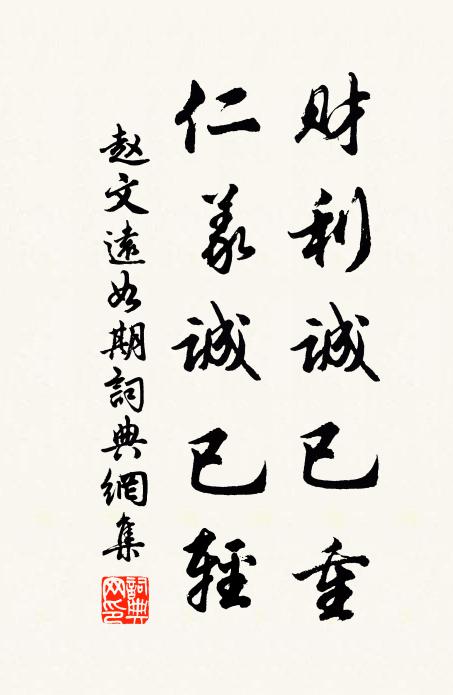 財利誠已重
仁義誠已輕
赵文遠如期詞典網集
詞典网印